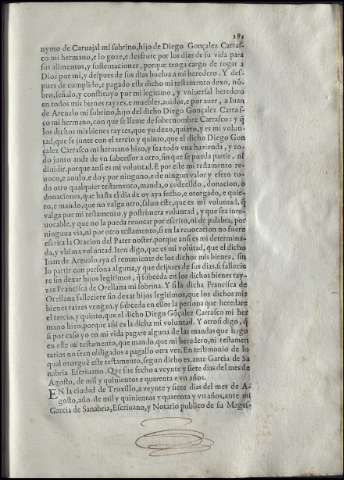 nymo de Caruajal mi sobrino, hijo de Diego Gonçalez Carras-
co mi hermano, e lo goze, e desfrute por los dias de su vida para
sus alimentos, y sustentaciones, porque tenga cargo de rogar a
Dios por mi, y despues de sus dias buelua a mi heredero. Y des-
pues de cumplido, e pagado este dicho mi testamento dexo, nō-
bro, señalo, y constituyo por mi legitimo, y vniuersal heredero
en todos mis bienes rayzes, e muebles, auidos, e por auer, a Juan
de Areualo mi sobrino, hijo del dicho Diego Gonçalez Carras-
co mi hermano, con que se llame de sobrenombre Carrasco: y q̄
los dichos mis bienes rayzes, que yo dexo, quiero, y es mi volun-
tad, que se junte con el tercio y quinto, que el dicho Diego Gon
çalez Carrasco mi hermano hizo, y sea todo vna hazienda, y to-
do junto ande de vn subcessor a otro, sin que se pueda partir, ni
diuidir, porque assi es mi voluntad. E por este mi testamento re-
uoco, e anulo, e doy por ninguno, e de ningun valor y efeto to-
do otro qualquier testamento, manda, o codecillo, donacion, o
donaciones, que hasta el dia de oy aya fecho, e otorgado, e quie-
ro, e mando, que no valga otro, saluo este, que es mi voluntad, q̄
valga por mi testamento, y postrimera voluntad, y que sea irre-
uocable, y que no la pueda reuocar por escrito, ni de palabra, por
ninguna via, ni por otro testamento, si en la reuocacion no fuere
escrita la Oracion del Pater noster, porque assi es mi determina-
da, y vltima voluntad. Iten digo, que es mi volūtad, que el dicho
Juan de Areualo aya el remaniente de los dichos mis bienes, sin
lo partir con persona alguna, y que despues de sus dias, si fallecie
re sin dexar hijos legitimos, q̄ subceda en los dichos bienes ray-
zes Francisca de Orellana mi sobrina. Y si la dicha Francisca de
Orellana falleciere sin dexar hijos legitimos, que los dichos mis
bienes raizes vengan, y subceda en ellos la persona que heredare
el tercio, y quinto, que el dicho Diego Gōçalez Carrasco mi her
mano hizo, porque assi es la dicha mi voluntad. Y otrosi digo, q̄
si por caso yo en mi vida pagare alguna de las mandas que hago
en este mi testamento, que mando, que mi heredero, ni testamen
tarios no sean obligados a pagallo otra vez. En testimonio de lo
qual otorguè este testamento, segun dicho es, ante Garcia de Sa
nabria Escriuano. Que fue fecho a veynte y siete dias del mes de
Agosto, de mil y quinientos e quarenta e vn años.
EN la ciudad de Truxillo, a veynte y siete dias del mes de A-
gosto, año de mil y quinientos y quarenta y vn años, ante mi
Garcia de Sanabria, Escriuano, y Notario publico de su Mages-